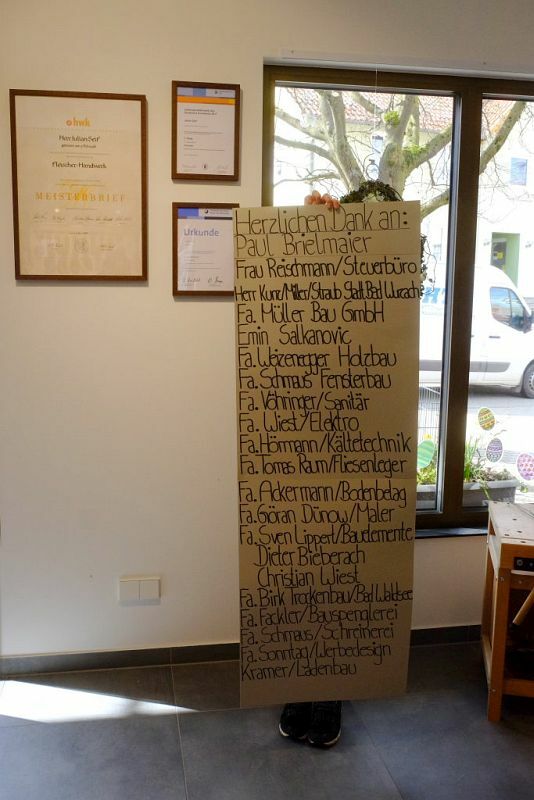 hwk
Herr Julian Seif
Fleischer-Handwerk
MEISTERBRIEF
Urkunde
Herzlichen Dank an:
Paul Brielmaier
Frau Reischmann/Steuerbüro
Herr Kunz/Miller/Straub Stadt Bad Wurzach
Fa. Müller Bau GmbH
Emin Salkanovic
Fa. Weizenegger Holzbau
Fa. Schmaus Fensterbau
Fa. Vöhringer/Sanitär
Fa. Wiest/Elektro
Fa. Hörmann/Kältetechnik
Fa. Tomas Raum/Fliesenleger
Fa. Ackermann/Bodenbelag
Fa. Göran Dünow/Maler
Fa. Sven Lippert/Bauelemente
Dieter Bieberach
Christian Wiest
Fa. Birk Trockenbau/Bad Waldsee
Fa. Fackler/Bauspenglerei
Fa. Schmaus/Schreinerei
Fa. Sonntag/Werbedesign
Kramer/Ladenbau